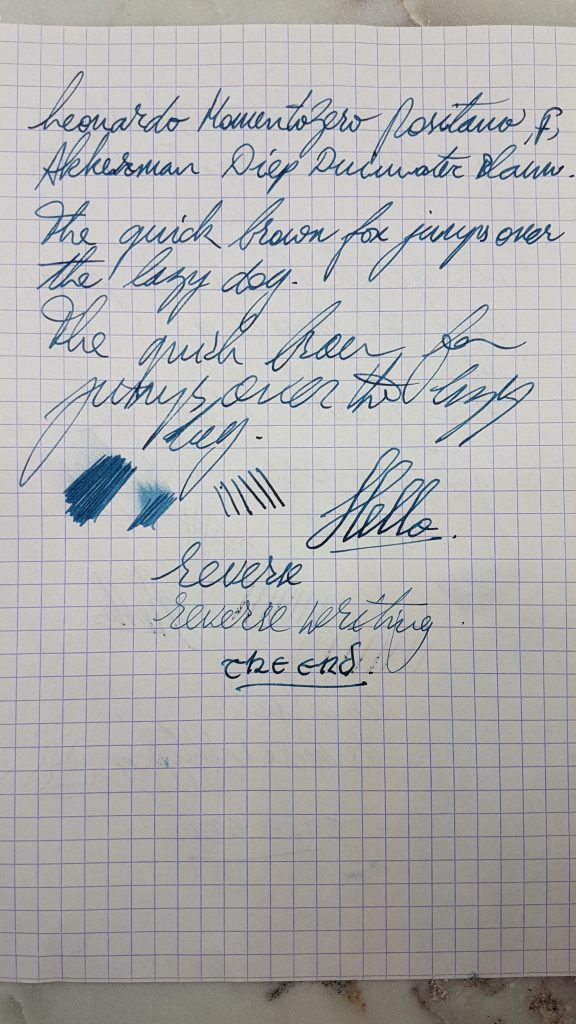 Leonardo MomentoZero Positano, F,
Akkerman Diep Duinwater Blauw.
The quick brown fox jumps over
the lazy dog.
The quick brown fox
jumps over the lazy
dog.
Hello.
reverse
reverse writing.
THE END.